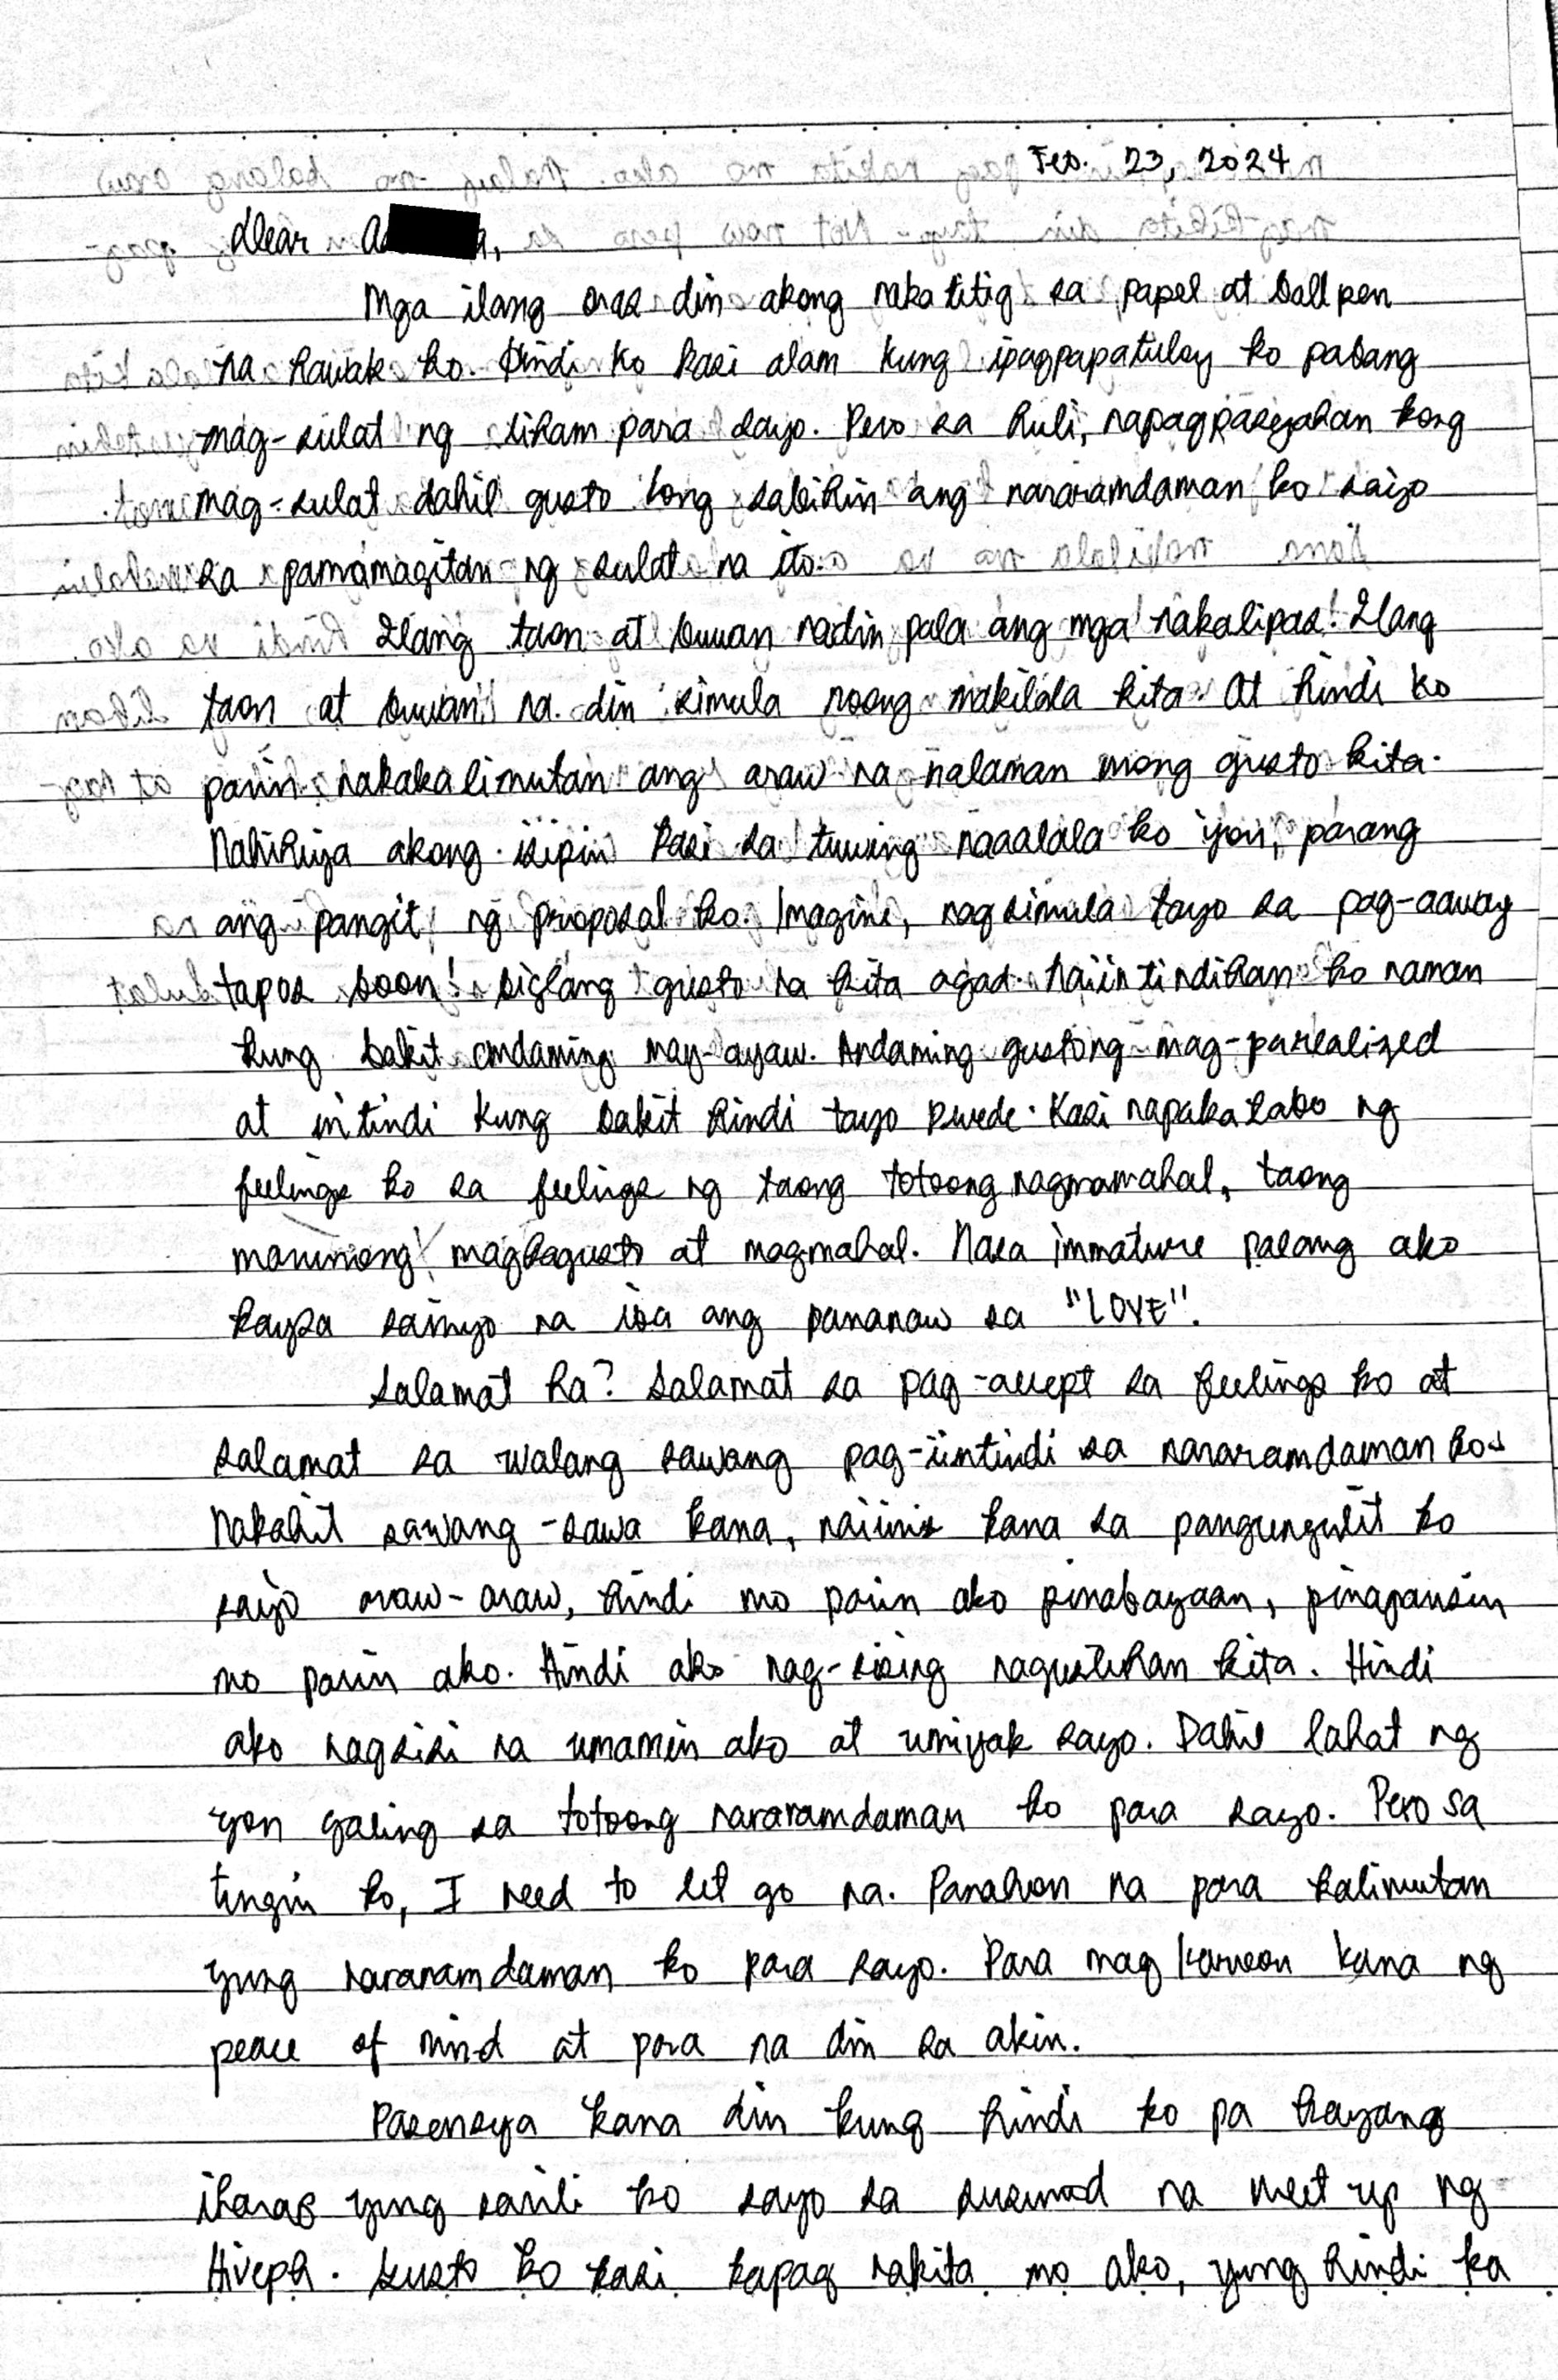 Feb. 23, 2024
Dear A a,
Mga ilang oras din akong nakatitig sa papel at ballpen
na hawak ko. Hindi ko kasi alam kung ipagpapatuloy ko pabang
mag-sulat ng liham para sayo. Pero sa huli, napagpasyahan kong
mag-sulat dahil gusto kong sabihin ang nararamdaman ko saiyo
sa pamamagitan ng sulat na ito.
Ilang taon at buwan nadin pala ang mga nakalipas! Ilang
taon at buwan na din simula noong makilala kita. At hindi ko
parin nakakalimutan ang araw na nalaman mong gusto kita.
Nahihiya akong isipin kasi sa tuwing naaalala ko iyon, parang
ang pangit ng proposal ko. Imagine, nagsimula tayo sa pag-aaway
tapos boom! biglang gusto na kita agad. Naiintindihan ko naman
kung bakit andaming may-ayaw. Andaming gustong mag-parealized
at intindi kung bakit hindi tayo pwede. Kasi napakalabo ng
feelings ko sa feelings ng taong totoong nagmamahal, taong
marunong magkagusto at magmahal. Nasa immature palang ako
kaysa sainyo na iba ang pananaw sa "LOVE".
Salamat ha? Salamat sa pag-accept sa feelings ko at
salamat sa walang sawang pag-iintindi sa nararamdaman ko.
Nakahit sawang-sawa kana, naiinis kana sa pangungulit ko
saiyo araw-araw, hindi mo parin ako pinabayaan, pinapansin
mo parin ako. Hindi ako nag-sising nagustuhan kita. Hindi
ako nagsisi na umamin ako at umiyak sayo. Dahil lahat ng
yon galing sa totoong nararamdaman ko para sayo. Pero sa
tingin ko, I need to let go na. Panahon na para kalimutan
yung nararamdaman ko para sayo. Para magkaroon kana ng
peace of mind at para na din sa akin.
Pasensya kana din kung hindi ko pa kayang
iharap yung sarili ko sayo sa susunod na meet up ng
Hiveph. Gusto ko kasi kapag nakita mo ako, yung hindi ka